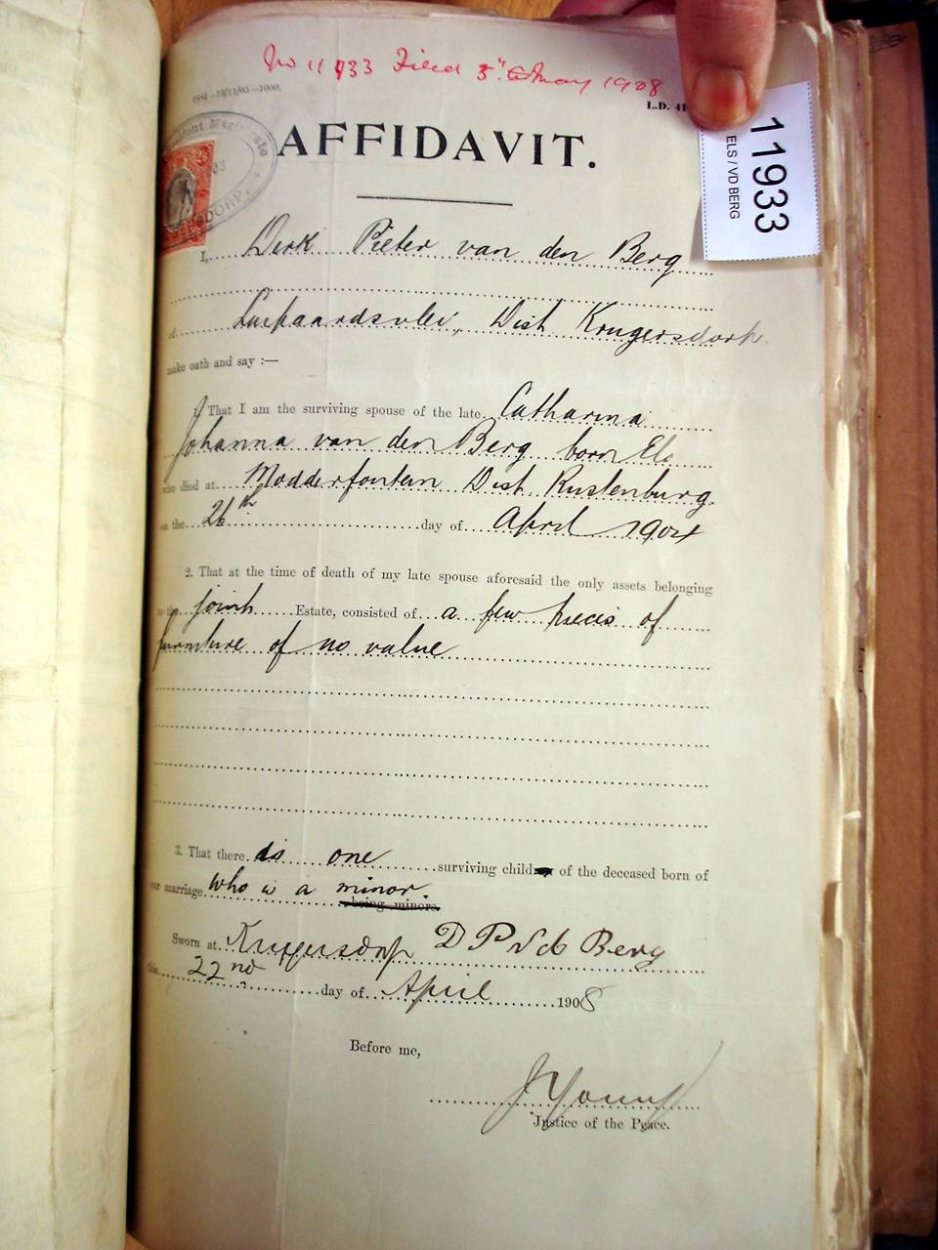 No 11933 Filed 5th May 1908
L.D. 41
AFFIDAVIT.
11933
ELS / VD BERG
I, Dirk Pieter van den Berg
of Luipaardsvlei, Dist Krugersdorp.
make oath and say :—
1 That I am the surviving spouse of the late Catharina
Johanna van den Berg born Els
who died at Modderfontein Dist Rustenburg.
on the 26th day of April 1904
2. That at the time of death of my late spouse aforesaid the only assets belonging
to the joint Estate, consisted of a few pieces of
furniture of no value
3. That there is one surviving child of the deceased born of
our marriage who is a minor being minors.
Sworn at Krugersdorp D P vd Berg
this 22nd day of April 1908
Before me,
J Young
Justice of the Peace.